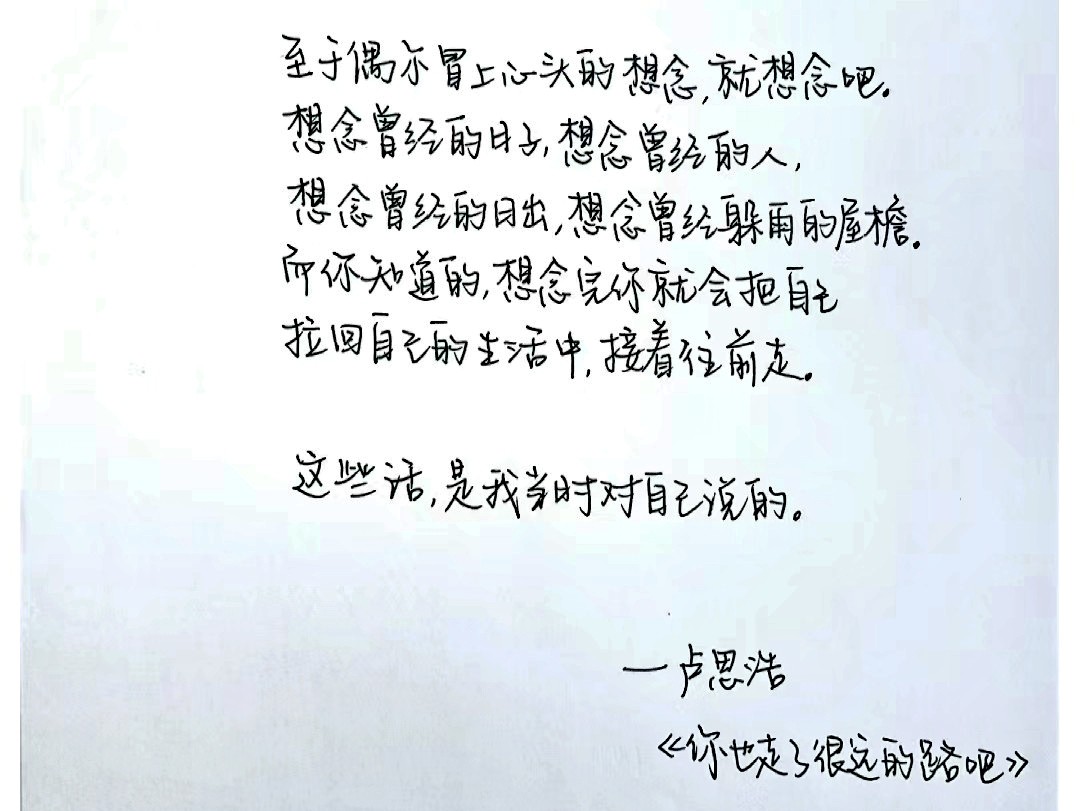 至于偶尔冒上心头的想念,就想念吧。
想念曾经的日子,想念曾经的人,
想念曾经的日出,想念曾经躲雨的屋檐。
而你知道的,想念完你就会把自己
拉回自己的生活中,接着往前走。
这些话,是我当时对自己说的。
—卢思浩
《你也走了很远的路吧》